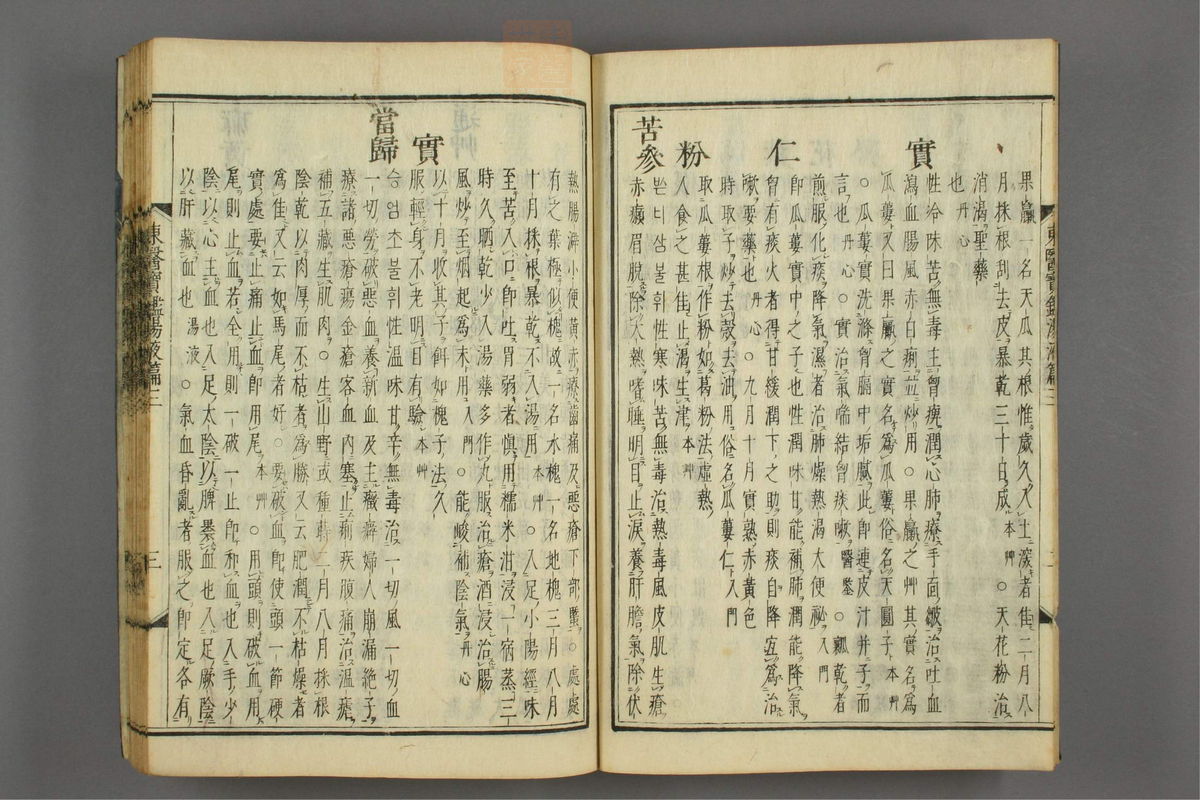 果蠃一名天瓜其根惟歲久入土深者佳二月八
月採根刮去皮暴乾三十日成本艸○天花粉治
消渴聖藥
也丹心
實
性冷味苦無毒主胷痺潤心肺療手面皺治吐血
瀉血腸風赤白痢並炒用○果蠃之艸其實名爲
瓜蔞又曰果蠃之實名爲瓜蔞俗名天圓子本艸
○瓜蔞實洗滌胷膈中垢膩此即連皮汁幷子而
言也丹心○實治氣喘結胷痰嗽醫鑒○瓤乾者
煎服化痰降氣濕者治肺燥熱渴大便祕入門
仁
即瓜蔞實中之子也性潤味甘能補肺潤能降氣
胷有痰火者得甘緩潤下之助則痰自降宜爲治
嗽要藥也丹心○九月十月實熟赤黃色
時取子炒去殼去油用俗名瓜蔞仁入門
粉
取瓜蔞根作粉如葛粉法虛熱
人食之甚佳止渴生津本艸
苦參
ᄡᅳᆫ너삼불휘性寒味苦無毒治熱毒風皮肌生瘡
赤癩眉脫除大熱嗜睡明目止淚養肝膽氣除伏
熱腸澼小便黃赤療齒痛及惡瘡下部䘌○處處
有之葉極似槐故一名水槐一名地槐三月八月
十月採根暴乾不入湯用本艸○入足少陽經味
至苦入口即吐胃弱者愼用糯米泔浸一宿蒸三
時久晒乾少入湯藥多作丸服治瘡酒浸治腸
風炒至烟起爲末用入門○能峻補陰氣丹心
實
以十月收其子餌如槐子法久
服輕身不老明目有驗本艸
當歸
승엄초불휘性溫味甘辛無毒治一切風一切血
一切勞破惡血養新血及主癥癖婦人崩漏絶子
療諸惡瘡瘍金瘡客血內塞止痢疾腹痛治溫瘧
補五藏生肌肉○生山野或種蒔二月八月採根
陰乾以肉厚而不枯者爲勝又云肥潤不枯燥者
爲佳又云如馬尾者好○要破血即使頭一節硬
實處要止痛止血即用尾本艸○用頭則破血用
尾則止血若全用則一破一止即和血也入手少
陰以心主血也入足太陰以脾裹血也入足厥陰
以肝藏血也湯液○氣血昏亂者服之即定各有
東醫寶鑑湯液篇三
三